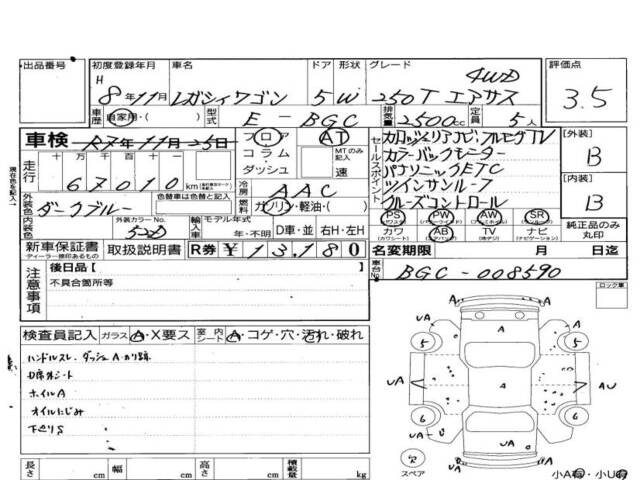 出品番号 初度登録年月 車名 ドア 形状 グレード 評価点
H 8年11月 レガシィワゴン 5 W 250T エアサス 4WD 3.5
車歴 自家用・( ) 型式 E-BGC 排気量 2500cc 定員 5人
車検 R7年11月25日 フロア AT カロッツェリアナビ フルセグTV [外装]
走行 十万 万 千 百 十 一 コラム MTのみ記入 セールスポイント カラーバックモニター B
67010 km ダッシュ 速 パナソニックETC
冷房 AAC ツインサンルーフ [内装]
外装色 ダークブルー 色替車は色替と記入 燃料 ガソリン・軽油・( ) クルーズコントロール B
内装色 外装カラーNo. 輸入車 モデル年式 年・不明 D車・並 右H・左H PS PW AW SR
カワ AB TV ナビ 純正品のみ丸印
新車保証書 取扱説明書 R券 ¥13,180 名変期限 月 日迄
ディーラー捺印あるもの
注意事項 後日品[ ] 車台No. BGC-008590
不具合箇所等 ロック車
検査員記入 ガラス A・X要ス 室内シート A・コゲ・穴・汚れ・破れ
ハンドルスレ
D席外シート
ホイルA
オイルにじみ
下廻りS
UA A UA
5 5
UA A AU
6 6
UA UA
スペア 小A有・小U有
長さ cm 幅 cm 高さ cm 積載量 kg